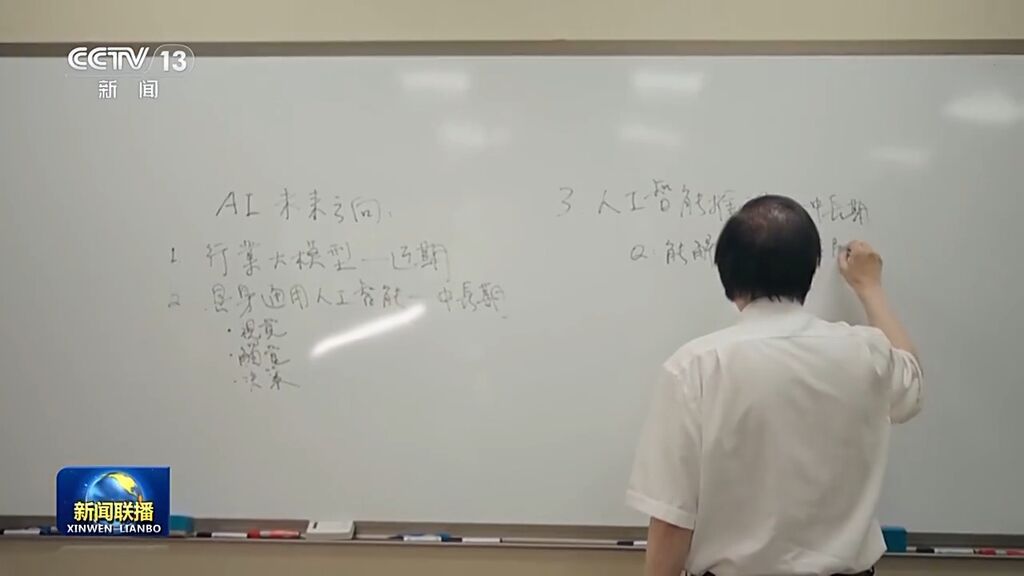 CCTV 13
新闻
AI 未来方向:
1 行業大模型—近期
2 具身通用人工智能— 中長期
·視覚
·觸覚
·决策
3 人工智能 中長期
Q: 能解
新闻联播
XINWEN LIANBO